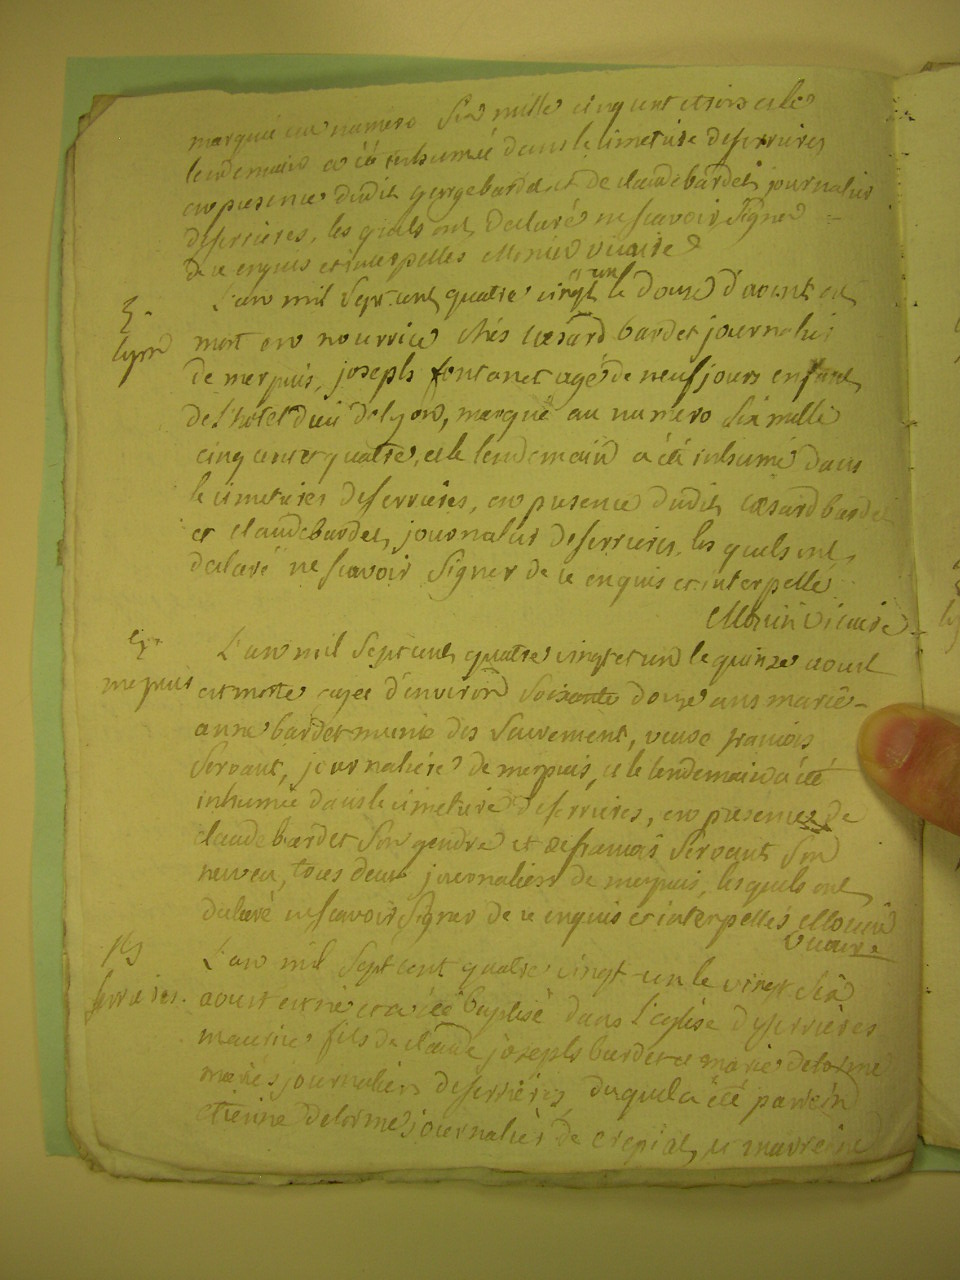 marquée au numero Six mille cinq cent et trois et le
lendemain a été inhumée dans le cimetiere deserrieres
en presence dudit george bardet et de claude bardet journalier
deserrieres, les quels ont declaré ne scavoir signer
de ce enquis et interpellés Monin vicaire
L'an mil Sept cent quatre vingt un le douse d'aoust est
Ez.
lyon
mort en nourrice chés cæsard bardet journalier
de merpuis, joseph fontanet agé de neuf jours enfant
de l'hotel dieu de lyon, marqué au numero Six mille
cinq cent et quatre, et le lendemain a été inhumé dans
le cimetieres deserrieres, en presence dudit cæsard bardet
et claude bardet, journalier deserrieres, les quels ont
declaré ne scavoir signer de ce enquis et interpellé
Monin vicaire
L'an mil Sept cent quatre vingt et un le quinze aoust
merpuis
est morte agée d'environ Soixante douze ans marie-
anne bardet munie des Sacrement, veuve francois
Servant, journaliére de merpuis, et le lendemain a été
inhumée dans le cimetiere deserrieres, en presence de
claude bardet Son gendre et de francois Servant Son
neveu, tous deux journaliers de merpuis, lesquels ont
declaré ne scavoir signer de ce enquis et interpellés Monin
vicaire
L'an mil Sept cent quatre vingt un le vingt Six
Serrieres.
aoust est né et a été baptisé dans l'eglise deserrières
maurice fils de claude joseph bardet et marie delorme
mariés journaliers deserrieres duquel a été parrein
etienne delorme journalier de crepiat, et marreine